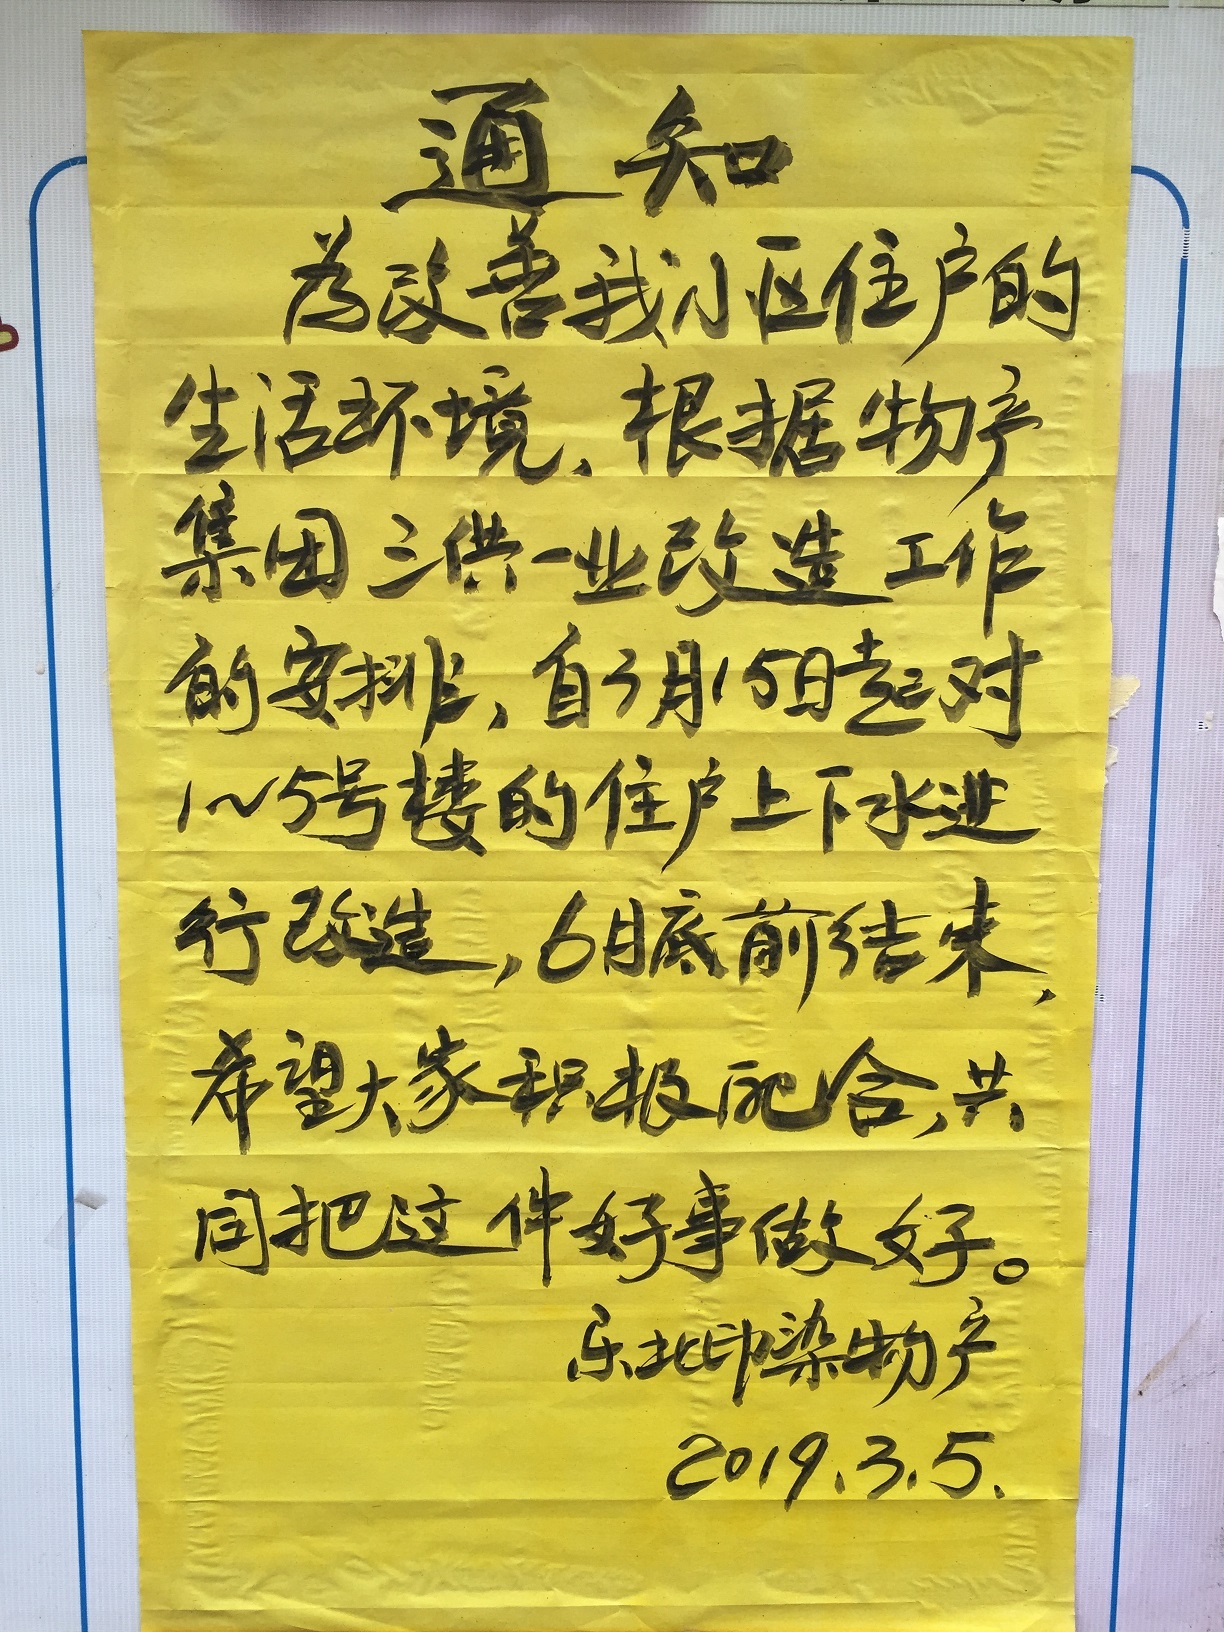 通知
为改善我小区住户的
生活环境、根据物产
集团三供一业改造工作
的安排，自3月15日起对
1~5号楼的住户上下水进
行改造，6月底前结束，
希望大家积极配合，共
同把这件好事做好。
东北印染物产
2019.3.5.